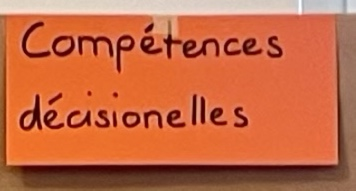 Compétences
décisionelles